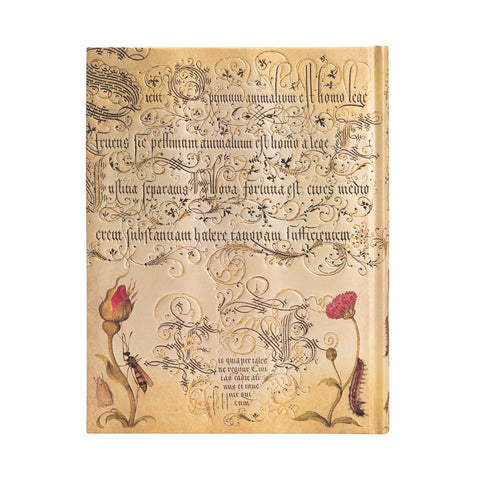 Sicut Optimum animalium est homo lege
fruens sic pessimum animalium est homo a lege
Iustitia separatus Nova fortuna est cives medio
crem substantiam habere tanquam sufficientem
is quia per tales
ne regitur Civi
tas cadit ali
nus et inue